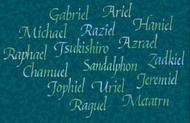 Gabriel Ariel
Michael Raziel Haniel
Raphael Tsukishiro Azrael
Chamuel Sandalphon Zadkiel
Jophiel Uriel Jeremiel
Raguel Metatrn